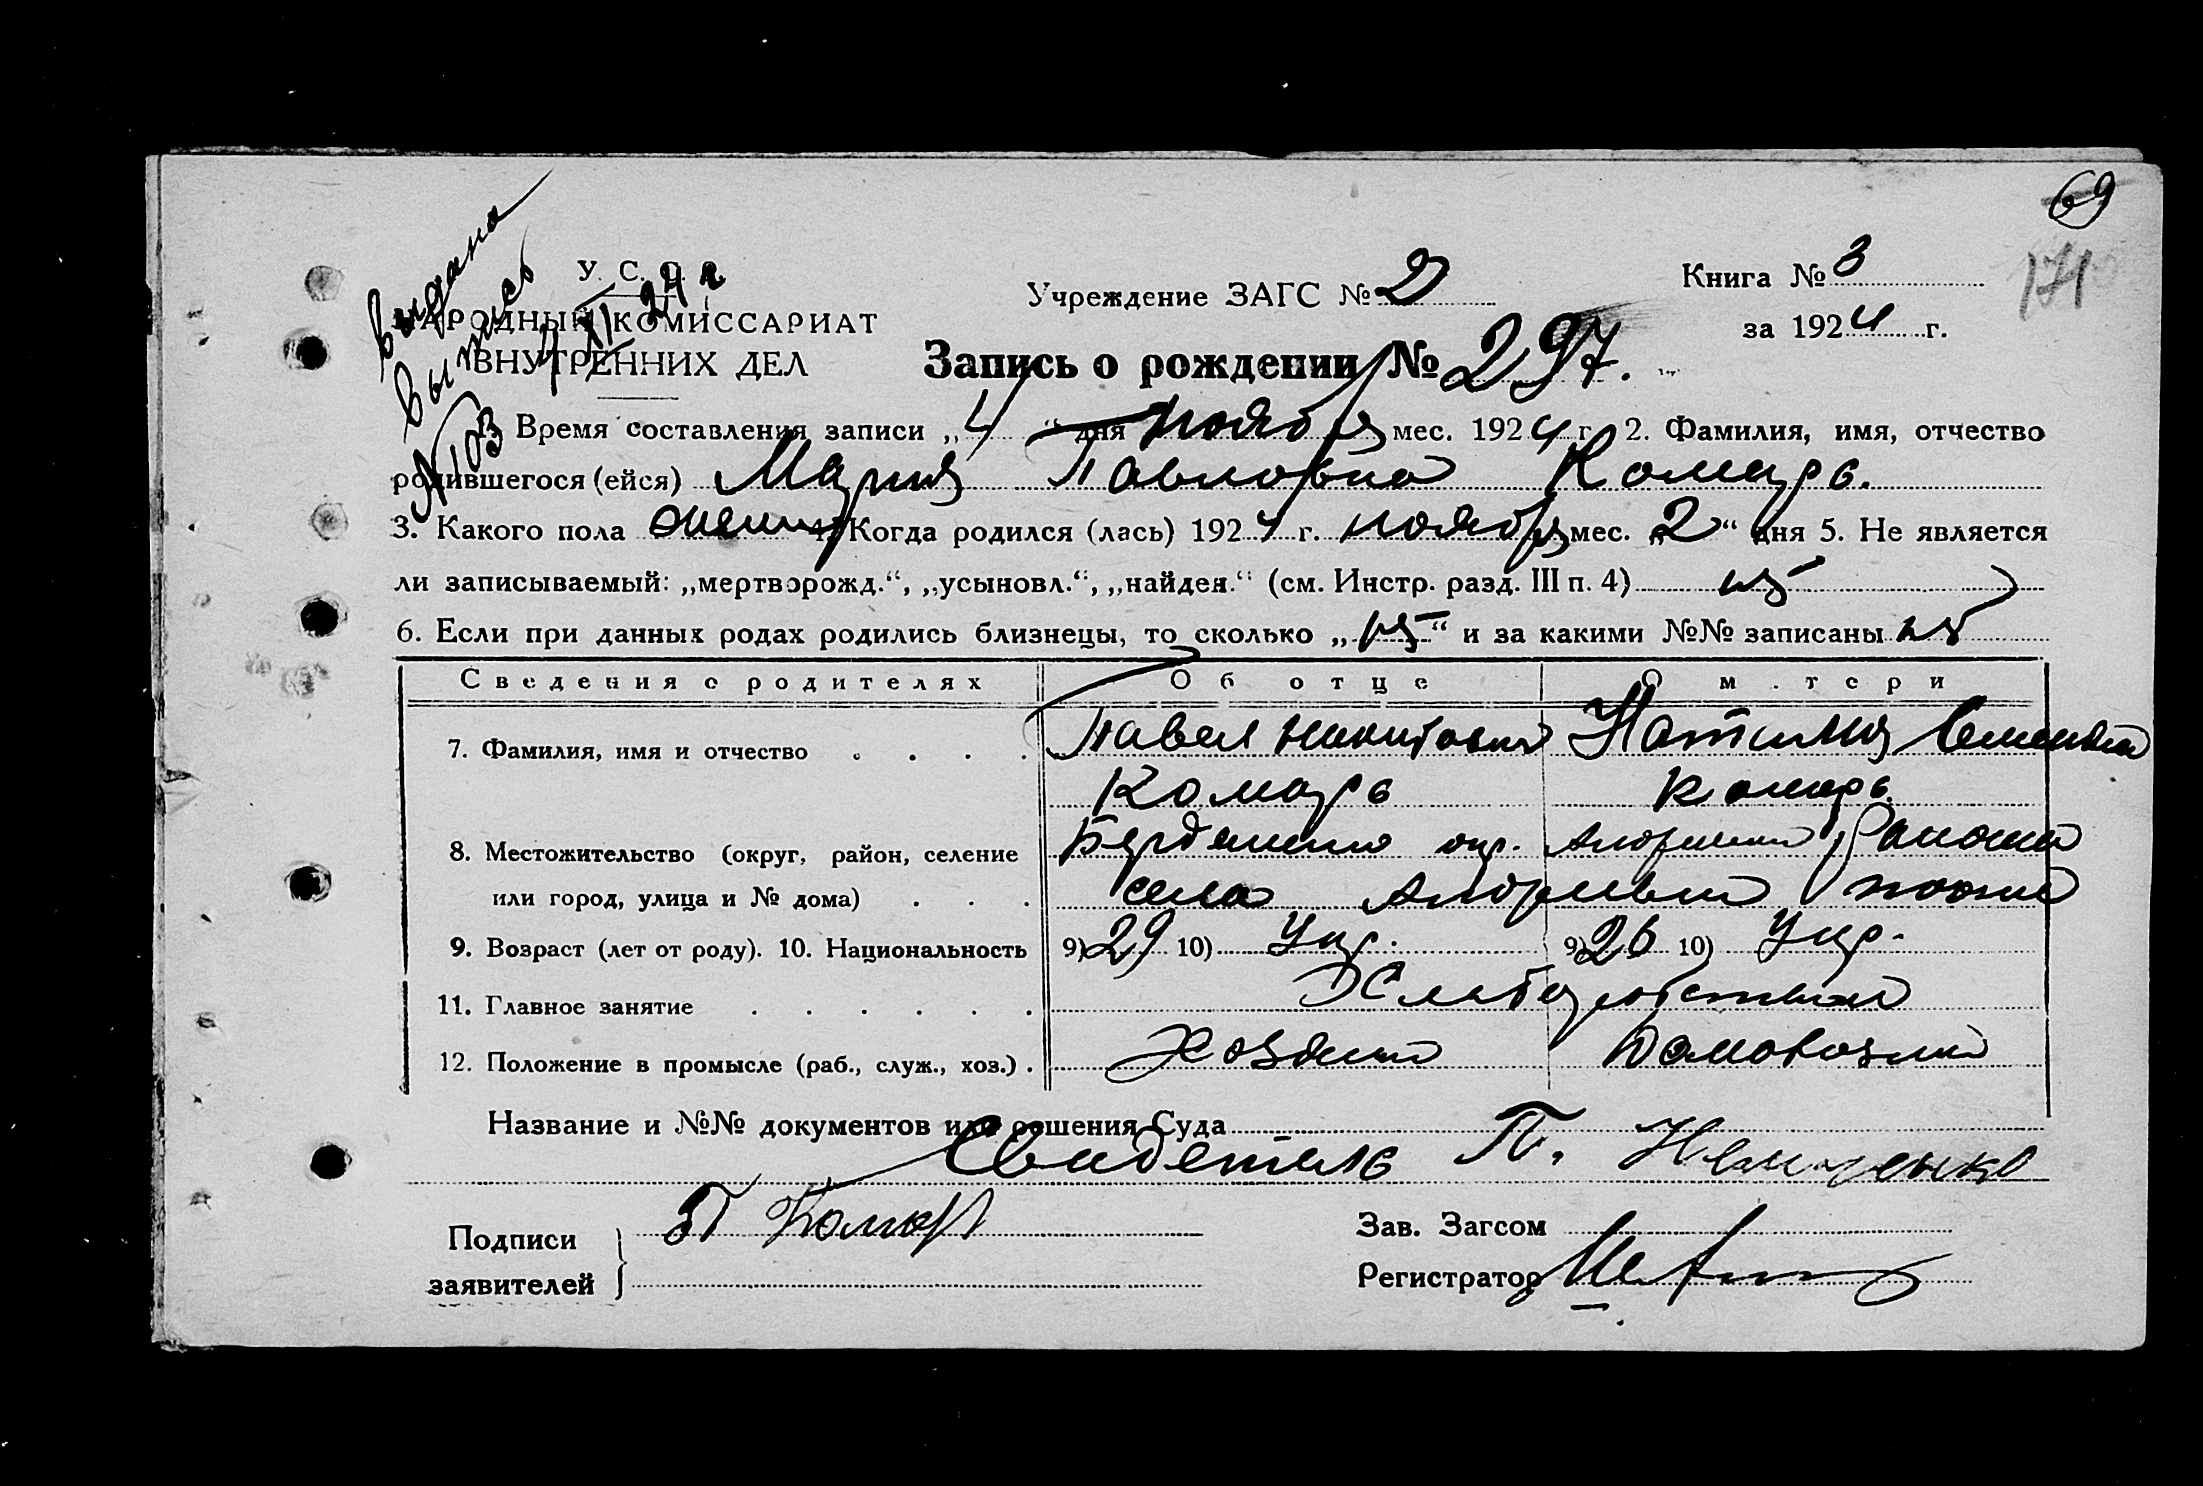 69
171
выдана
выпись
4/XI 24 г
№ 103
У. С. С. Р.
НАРОДНЫЙ КОМИССАРИАТ
ВНУТРЕННИХ ДЕЛ
Учреждение ЗАГС № 2
Книга № 3
за 1924 г.
Запись о рождении № 297.
1. Время составления записи „4“ дня ноября мес. 1924 г. 2. Фамилия, имя, отчество
родившегося (ейся) Мария Павловна Комарь.
3. Какого пола женщ 4. Когда родился (лась) 1924 г. ноября мес. „2“ дня 5. Не является
ли записываемый: „мертворожд.“, „усыновл.“, „найден.“ (см. Инстр. разд. III п. 4)
6. Если при данных родах родились близнецы, то сколько „ “ и за какими №№ записаны
Сведения о родителях Об отце О матери
7. Фамилия, имя и отчество . . . . Павел Никитович Наталия Семеновна
Комарь Комарь
8. Местожительство (округ, район, селение Бердянского окр. Андреевского Района
или город, улица и № дома) . . . села Андреевки
9. Возраст (лет от роду). 10. Национальность 9) 29 10) Укр. 9) 26 10) Укр.
11. Главное занятие . . . . . . Хлебопашество
12. Положение в промысле (раб., служ., хоз.) . Хозяин Домохозяйка
Название и №№ документов или решения Суда
Свидетель П.
Подписи
заявителей } П Комар
Зав. Загсом
Регистратор